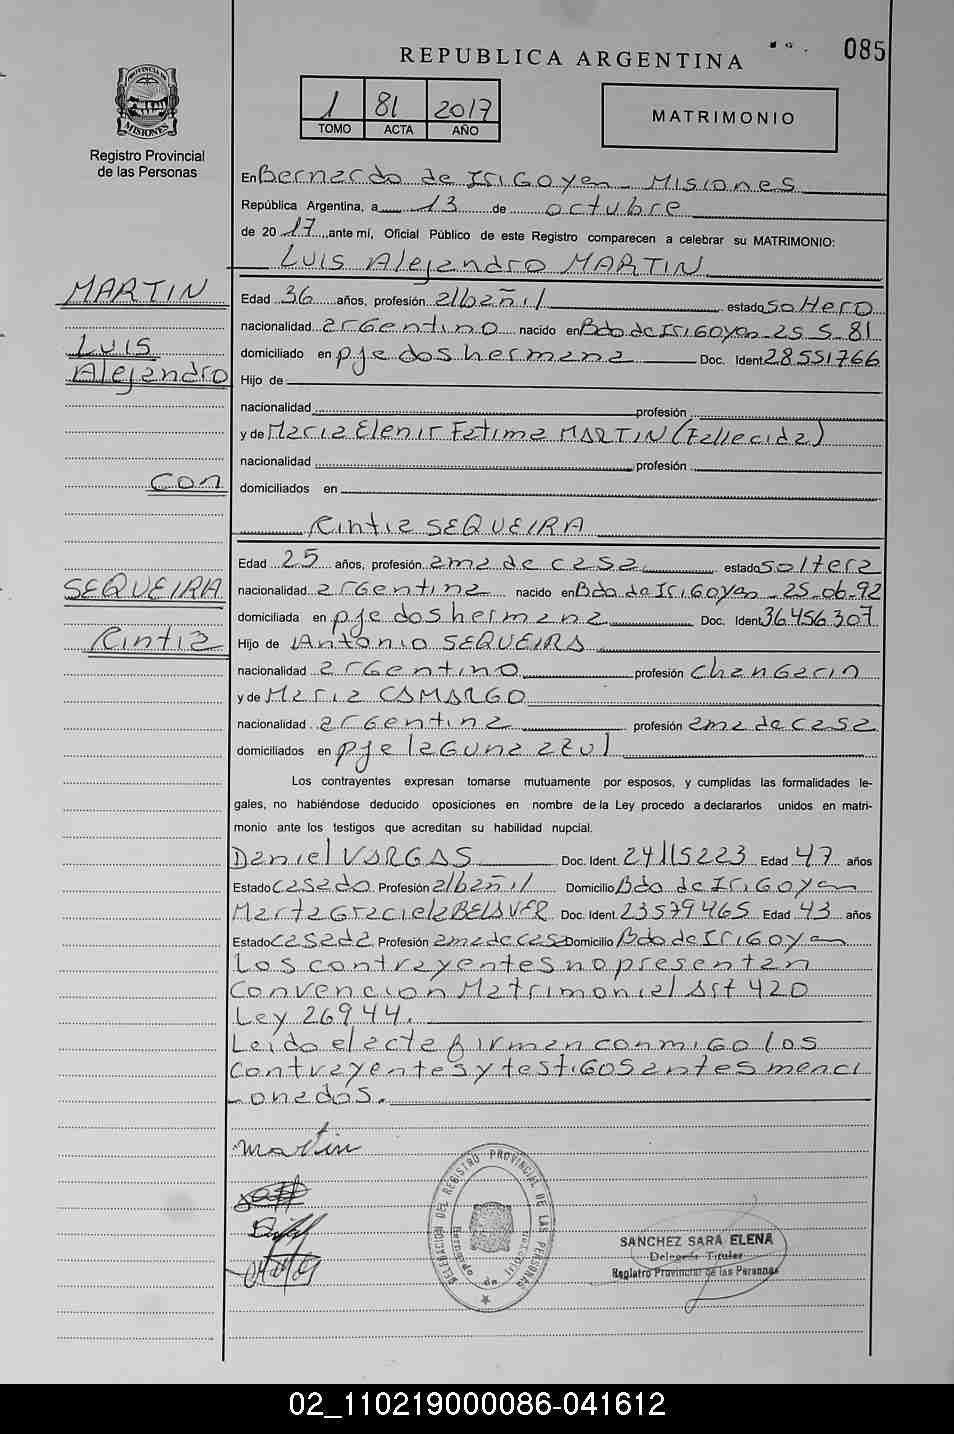 085
REPUBLICA ARGENTINA
PROVINCIA DE
MISIONES
Registro Provincial
de las Personas
1 81 2017
TOMO ACTA AÑO
MATRIMONIO
En Bernardo de IRIGOYEN - Misiones
República Argentina, a 13 de octubre
de 2017, ante mí, Oficial Público de este Registro comparecen a celebrar su MATRIMONIO:
Luis Alejandro MARTIN
MARTIN
Luis
Alejandro
con
SEQUEIRA
Cintia
Edad 36 años, profesión albañil estado soltero
nacionalidad argentino nacido en Bdo de Irigoyen - 25-5-81
domiciliado en pje dos hermana Doc. Ident 28551766
Hijo de
nacionalidad profesión
y de Maria Elenir Fatima MARTIN (Fallecida)
nacionalidad profesión
domiciliados en
Cintia SEQUEIRA
Edad 25 años, profesión ama de casa estado soltera
nacionalidad argentina nacido en Bdo de Irigoyen - 25-06-92
domiciliada en pje dos hermana Doc. Ident 36.456.307
Hijo de Antonio SEQUEIRA
nacionalidad argentino profesión changarin
y de Maria CAMARGO
nacionalidad argentina profesión ama de casa
domiciliados en pje laguna azul
Los contrayentes expresan tomarse mutuamente por esposos, y cumplidas las formalidades le-
gales, no habiéndose deducido oposiciones en nombre de la Ley procedo a declararlos unidos en matri-
monio ante los testigos que acreditan su habilidad nupcial.
Daniel VARGAS Doc. Ident. 24115223 Edad 47 años
Estado casado Profesión albañil Domicilio Bdo de Irigoyen
Marta Graciela BELAVER Doc. Ident. 23579465 Edad 43 años
Estado casada Profesión ama de casa Domicilio Bdo de Irigoyen
Los contrayentes no presentan
Convencion Matrimonial Art 420
Ley 26944.
Leido el acta firman conmigo los
contrayentes y testigos antes menci
onados.
martin
DELEGACION DEL REGISTRO PROVINCIAL DE LAS PERSONAS
Bernardo de Irigoyen
SANCHEZ SARA ELENA
Delegada Titular
Registro Provincial de las Personas
02_110219000086-041612